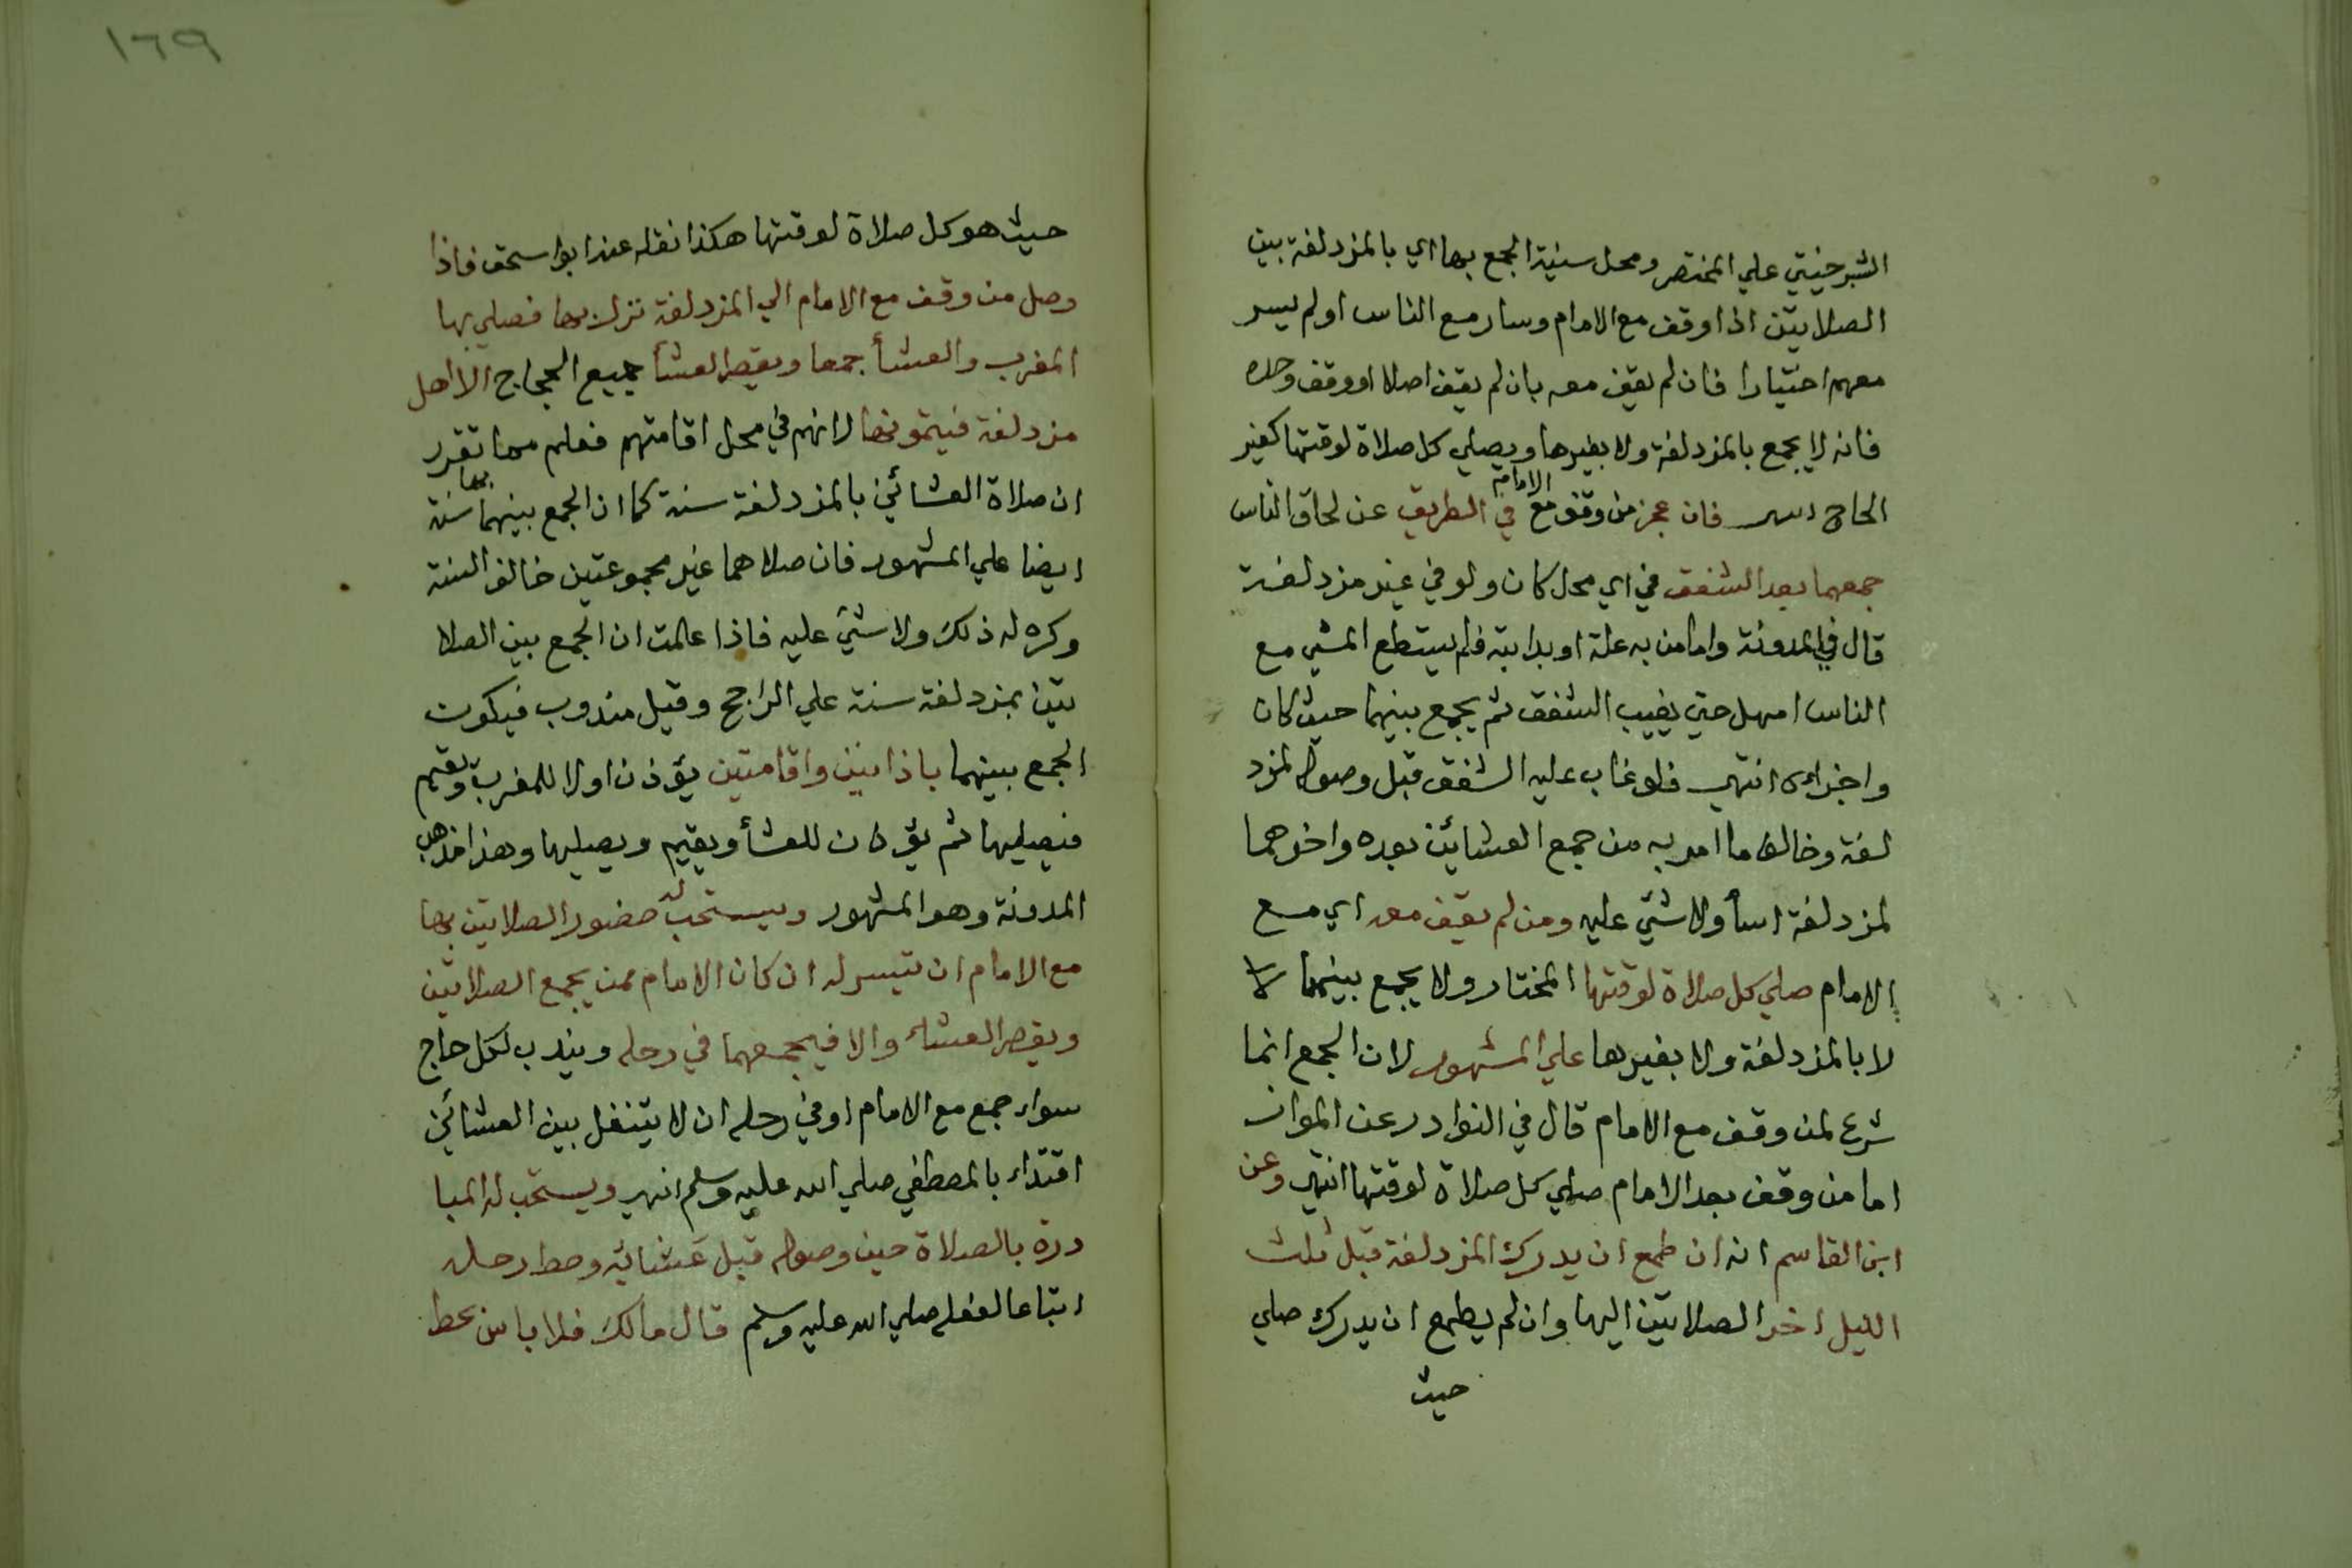 الشبرخيتي علي المختصر ومحل سنية الجمع بها اي بالمزدلفة بين
الصلاتين اذا وقف مع الامام وسار مع الناس او لم يسر
معهم اختيارا فان لم يقف معه بان لم يقف اصلا او وقف وحده
فانه لا يجمع بالمزدلفة ولا بغيرها ويصلي كل صلاة لوقتها كغير
الحاج فان عجز من وقف مع الامام في الطريق عن لحاق الناس
جمعهما بعد الشفق في اي محل كان ولو في غير مزدلفة
قال في المدونة واما من به علة او بدابته فلم يستطع المشي مع
الناس امهل حتي يغيب الشفق ثم يجمع بينهما حيث كان
واجزاه انتهي فلو غاب عليه الشفق قبل وصوله لمزد
لفة وخالف ما امر به من جمع العشائين بعده واخرهما
لمزدلفة اسأ ولا شئ عليه ومن لم يقف معه اي مع
الامام صلي كل صلاة لوقتها المختار ولا يجمع بينهما لا
لا بالمزدلفة ولا بغيرها علي المشهور لان الجمع انما
شرع لمن وقف مع الامام قال في النوادر عن المواز
اما من وقف بعد الامام صلي كل صلاة لوقتها انتهي وعن
ابن القاسم انه ان طمع ان يدرك المزدلفة قبل ثلث
الليل اخر الصلاتين اليها وان لم يطمع ان يدرك صلي
حيث
١٦٩
حيث هو كل صلاة لوقتها هكذا نقله عنه ابو اسحق فاذا
وصل من وقف مع الامام الي المزدلفة نزل بها فصلي بها
المغرب والعشأ جمعا ويقصر العشأ جميع الحجاج الا اهل
مزدلفة فيتمونها لانهم في محل اقامتهم فعلم مما تقرر
ان صلاة العشائين بالمزدلفة سنة كما ان الجمع بينهما بها سنة
ايضا علي المشهور فان صلاهما غير مجموعتين خالف السنة
وكره له ذلك ولا شئ عليه فاذا علمت ان الجمع بين الصلا
تين بمزدلفة سنة علي الراجح وقيل مندوب فيكون
الجمع بينهما باذانين واقامتين يؤذن اولا للمغرب ويقيم
فيصليها ثم يؤذن للعشأ ويقيم ويصليها وهذا مذهب
المدونة وهو المشهور ويستحب له حضور الصلاتين بها
مع الامام ان تيسر له ان كان الامام ممن يجمع الصلاتين
ويقصر العشاء والا فيجمعهما في رحله ويندب لكل حاج
سواء جمع مع الامام او في رحله ان لا يتنفل بين العشائين
اقتداء بالمصطفي صلي الله عليه وسلم انتهي ويستحب له المبا
درة بالصلاة حين وصوله قبل عشائيه وحط رحله
اتباعا لفعله صلي الله عليه وسلم قال مالك فلا باس بحط